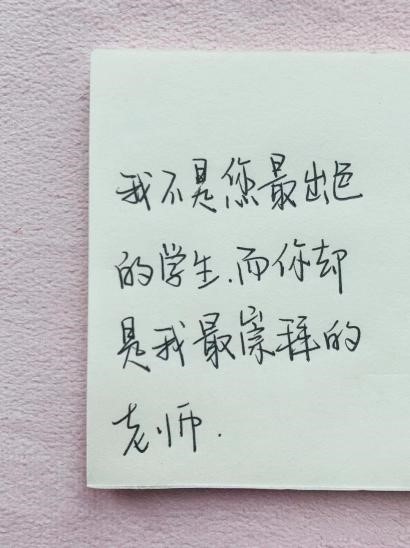 我不是您最出色
的学生.而你却
是我最崇拜的
老师.